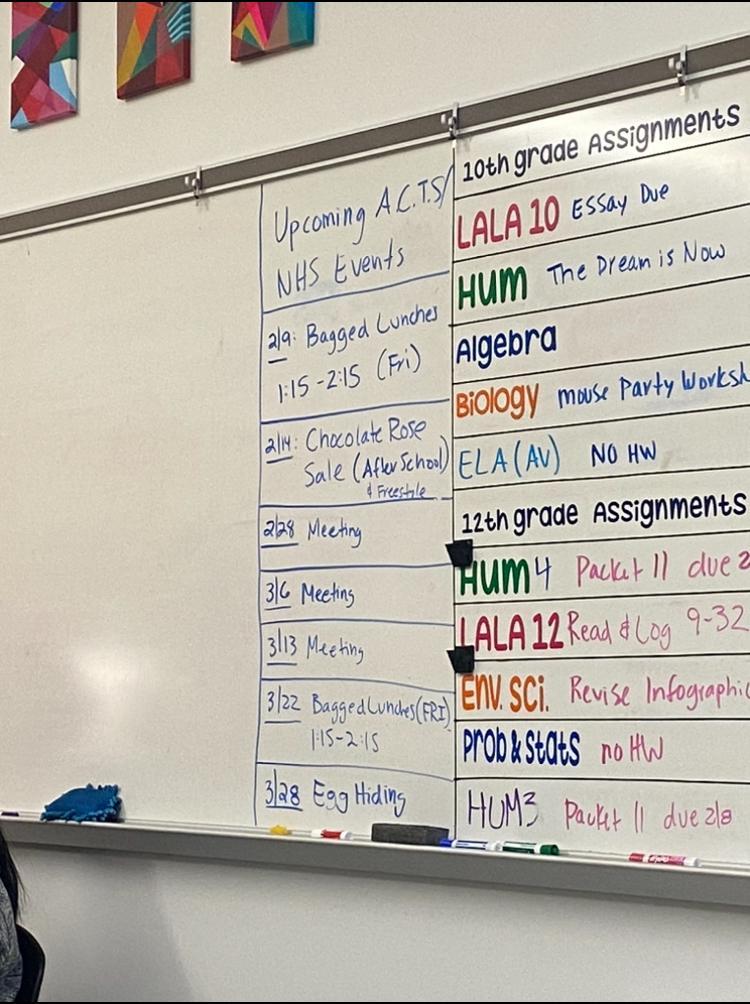 Upcoming A.C.T.S/
NHS Events
2/9: Bagged Lunches
1:15-2:15 (Fri)
2/14: Chocolate Rose
Sale (After School)
& Freestyle
2/28 Meeting
3/6 Meeting
3/13 Meeting
3/22 Bagged Lunches (FRI)
1:15-2:15
3/28 Egg Hiding
10th grade Assignments
LALA 10 Essay Due
HUM The Dream is Now
Algebra
Biology mouse Party Worksh
ELA (AV) NO HW
12th grade Assignments
Hum 4 Packet 11 due 2
LALA 12 Read & Log 9-32
Env. Sci. Revise Infographic
Prob & Stats no HW
HUM3 Packet 11 due 2/8